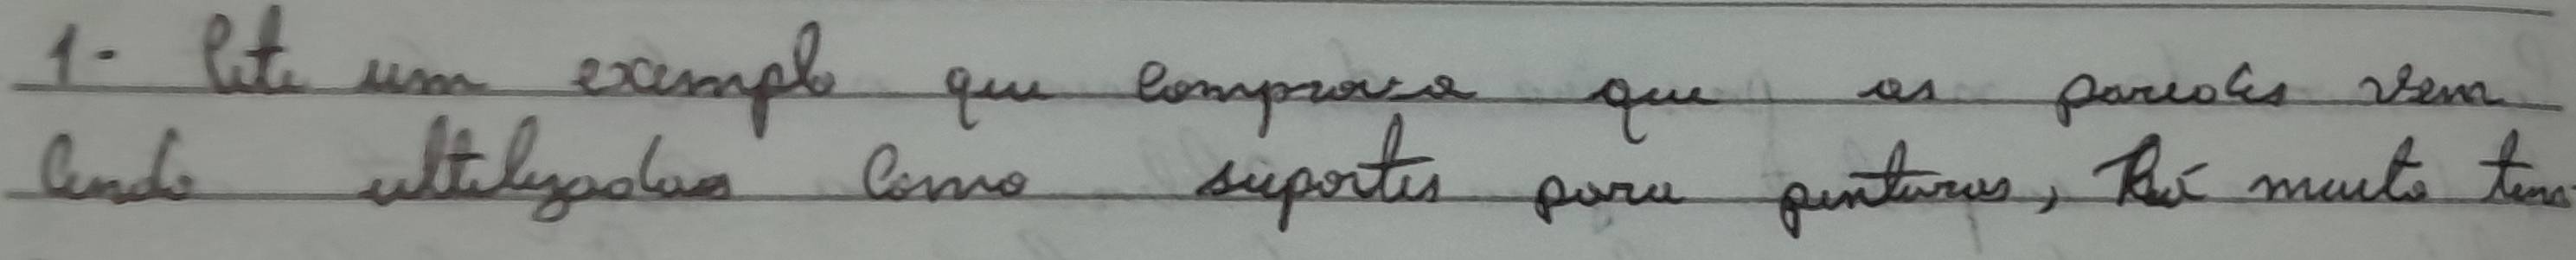 1- Cite um exemplo que comprova que as paredes vem
cendo ultilizadas como suportes para pinturas, há muito tem